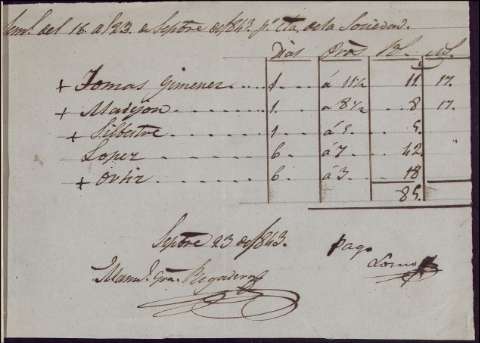 Seml. del 18 al 23. de Septre. de 1843. pr. cta. de la Sociedad.
Dias Pros. Rs. Ms.
+ Tomas Gimenez . . . 1 á 11½ 11. 17.
+ Madejon . . . 1. á 8½ 8 17.
+ Silbestre . . . 1 á 5. 5.
Lopez . . . 6. á 7 42.
+ Ortiz . . . 6. á 3. 18
85.
Septre. 23 de 1843.
Pago
Manl. Gra.